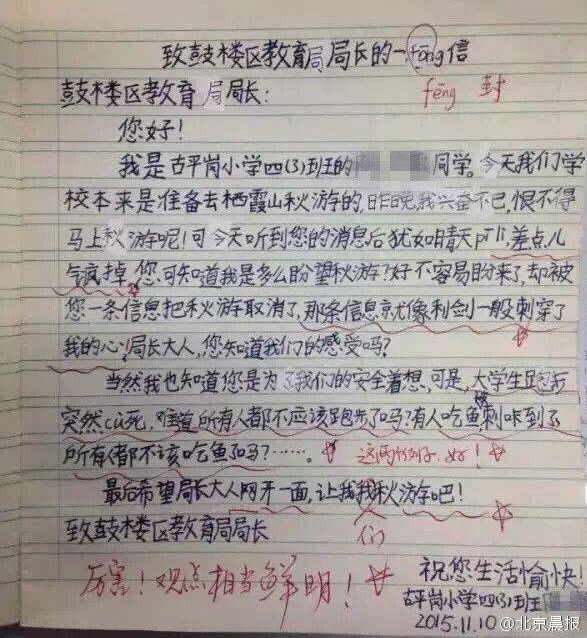 致鼓楼区教育局局长的一fōng信
fēng 封
鼓楼区教育局局长：
您好！
我是古平岗小学四(3)班的 同学。今天我们学
校本来是准备去栖霞山秋游的，昨晚，我兴奋不已，恨不得
马上秋游呢！可今天听到您的消息后犹如晴天pī lì，差点儿
气疯掉。您可知道我是多么盼望秋游？好不容易盼来了，却被
您一条信息把秋游取消了，那条信息就像利剑一般刺穿了
我的心，局长大人，您知道我们的感受吗？
当然我也知道您是为了我们的安全着想，可是，大学生跑步
突然cù死，难道所有人都不应该跑步了吗？有人吃鱼被刺咔到了
所有人都不该吃鱼了吗？……。 这两个例子，好！
最后希望局长大人网开一面，让我我秋游吧！
们
致鼓楼区教育局局长
厉害！观点相当鲜明！
祝您生活愉快！
古平岗小学四(3)班
2015.11.10
@北京晨报